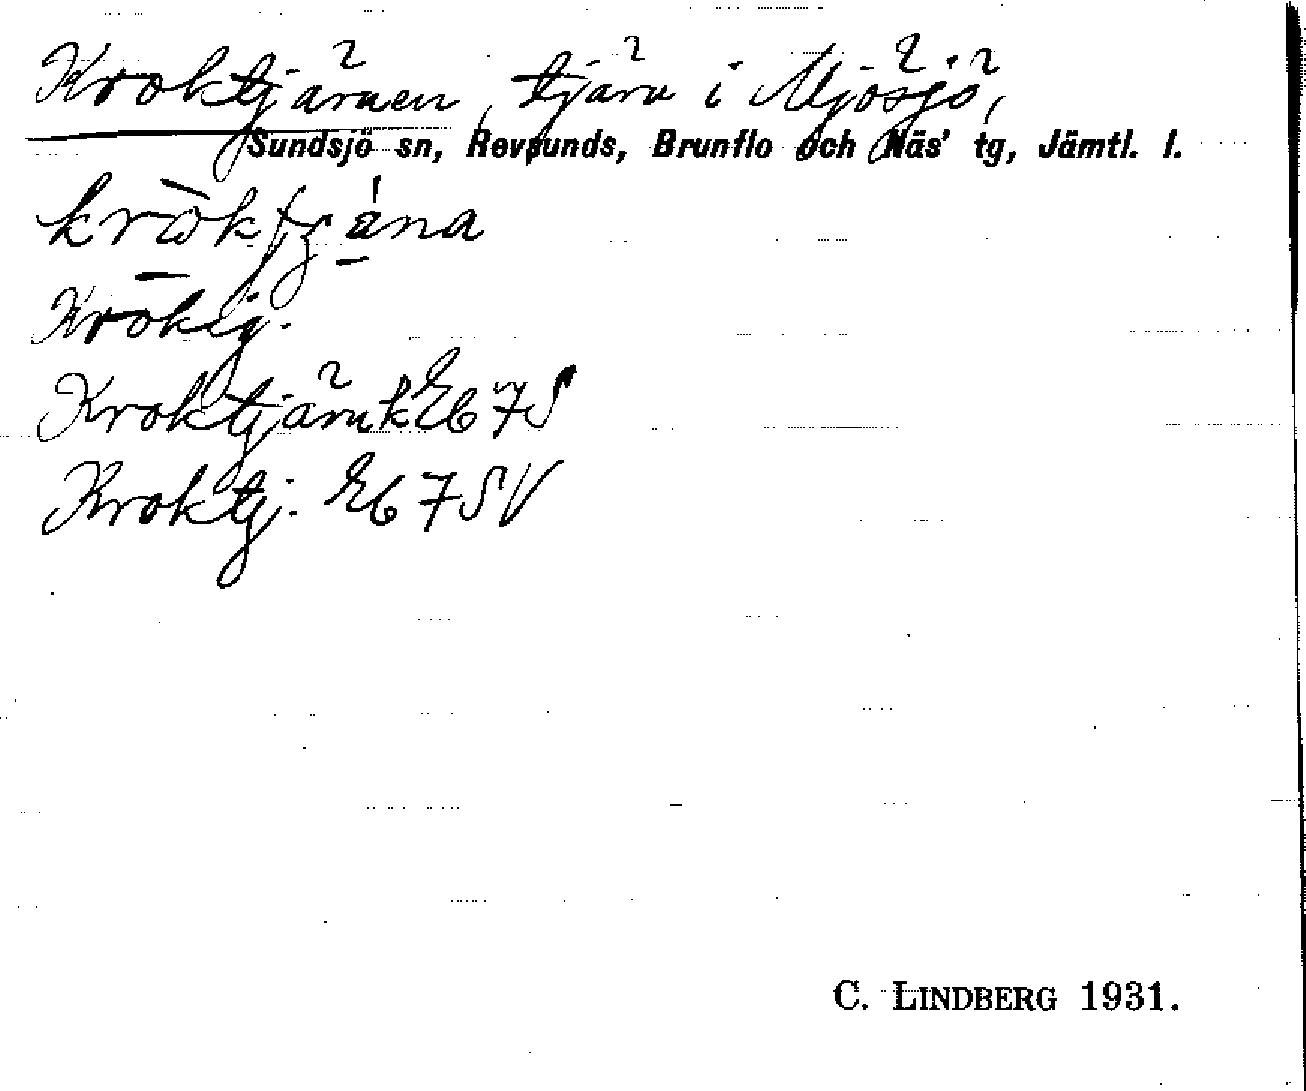 Kroktjärnen, tjärn i Mjösjö,
Sundsjö sn, Revsunds, Brunflo och Näs' tg, Jämtl. l.
Kroktj.
Kroktjärn k Eb 7 S
Kroktj. Eb 7 SV
C. LINDBERG 1931.